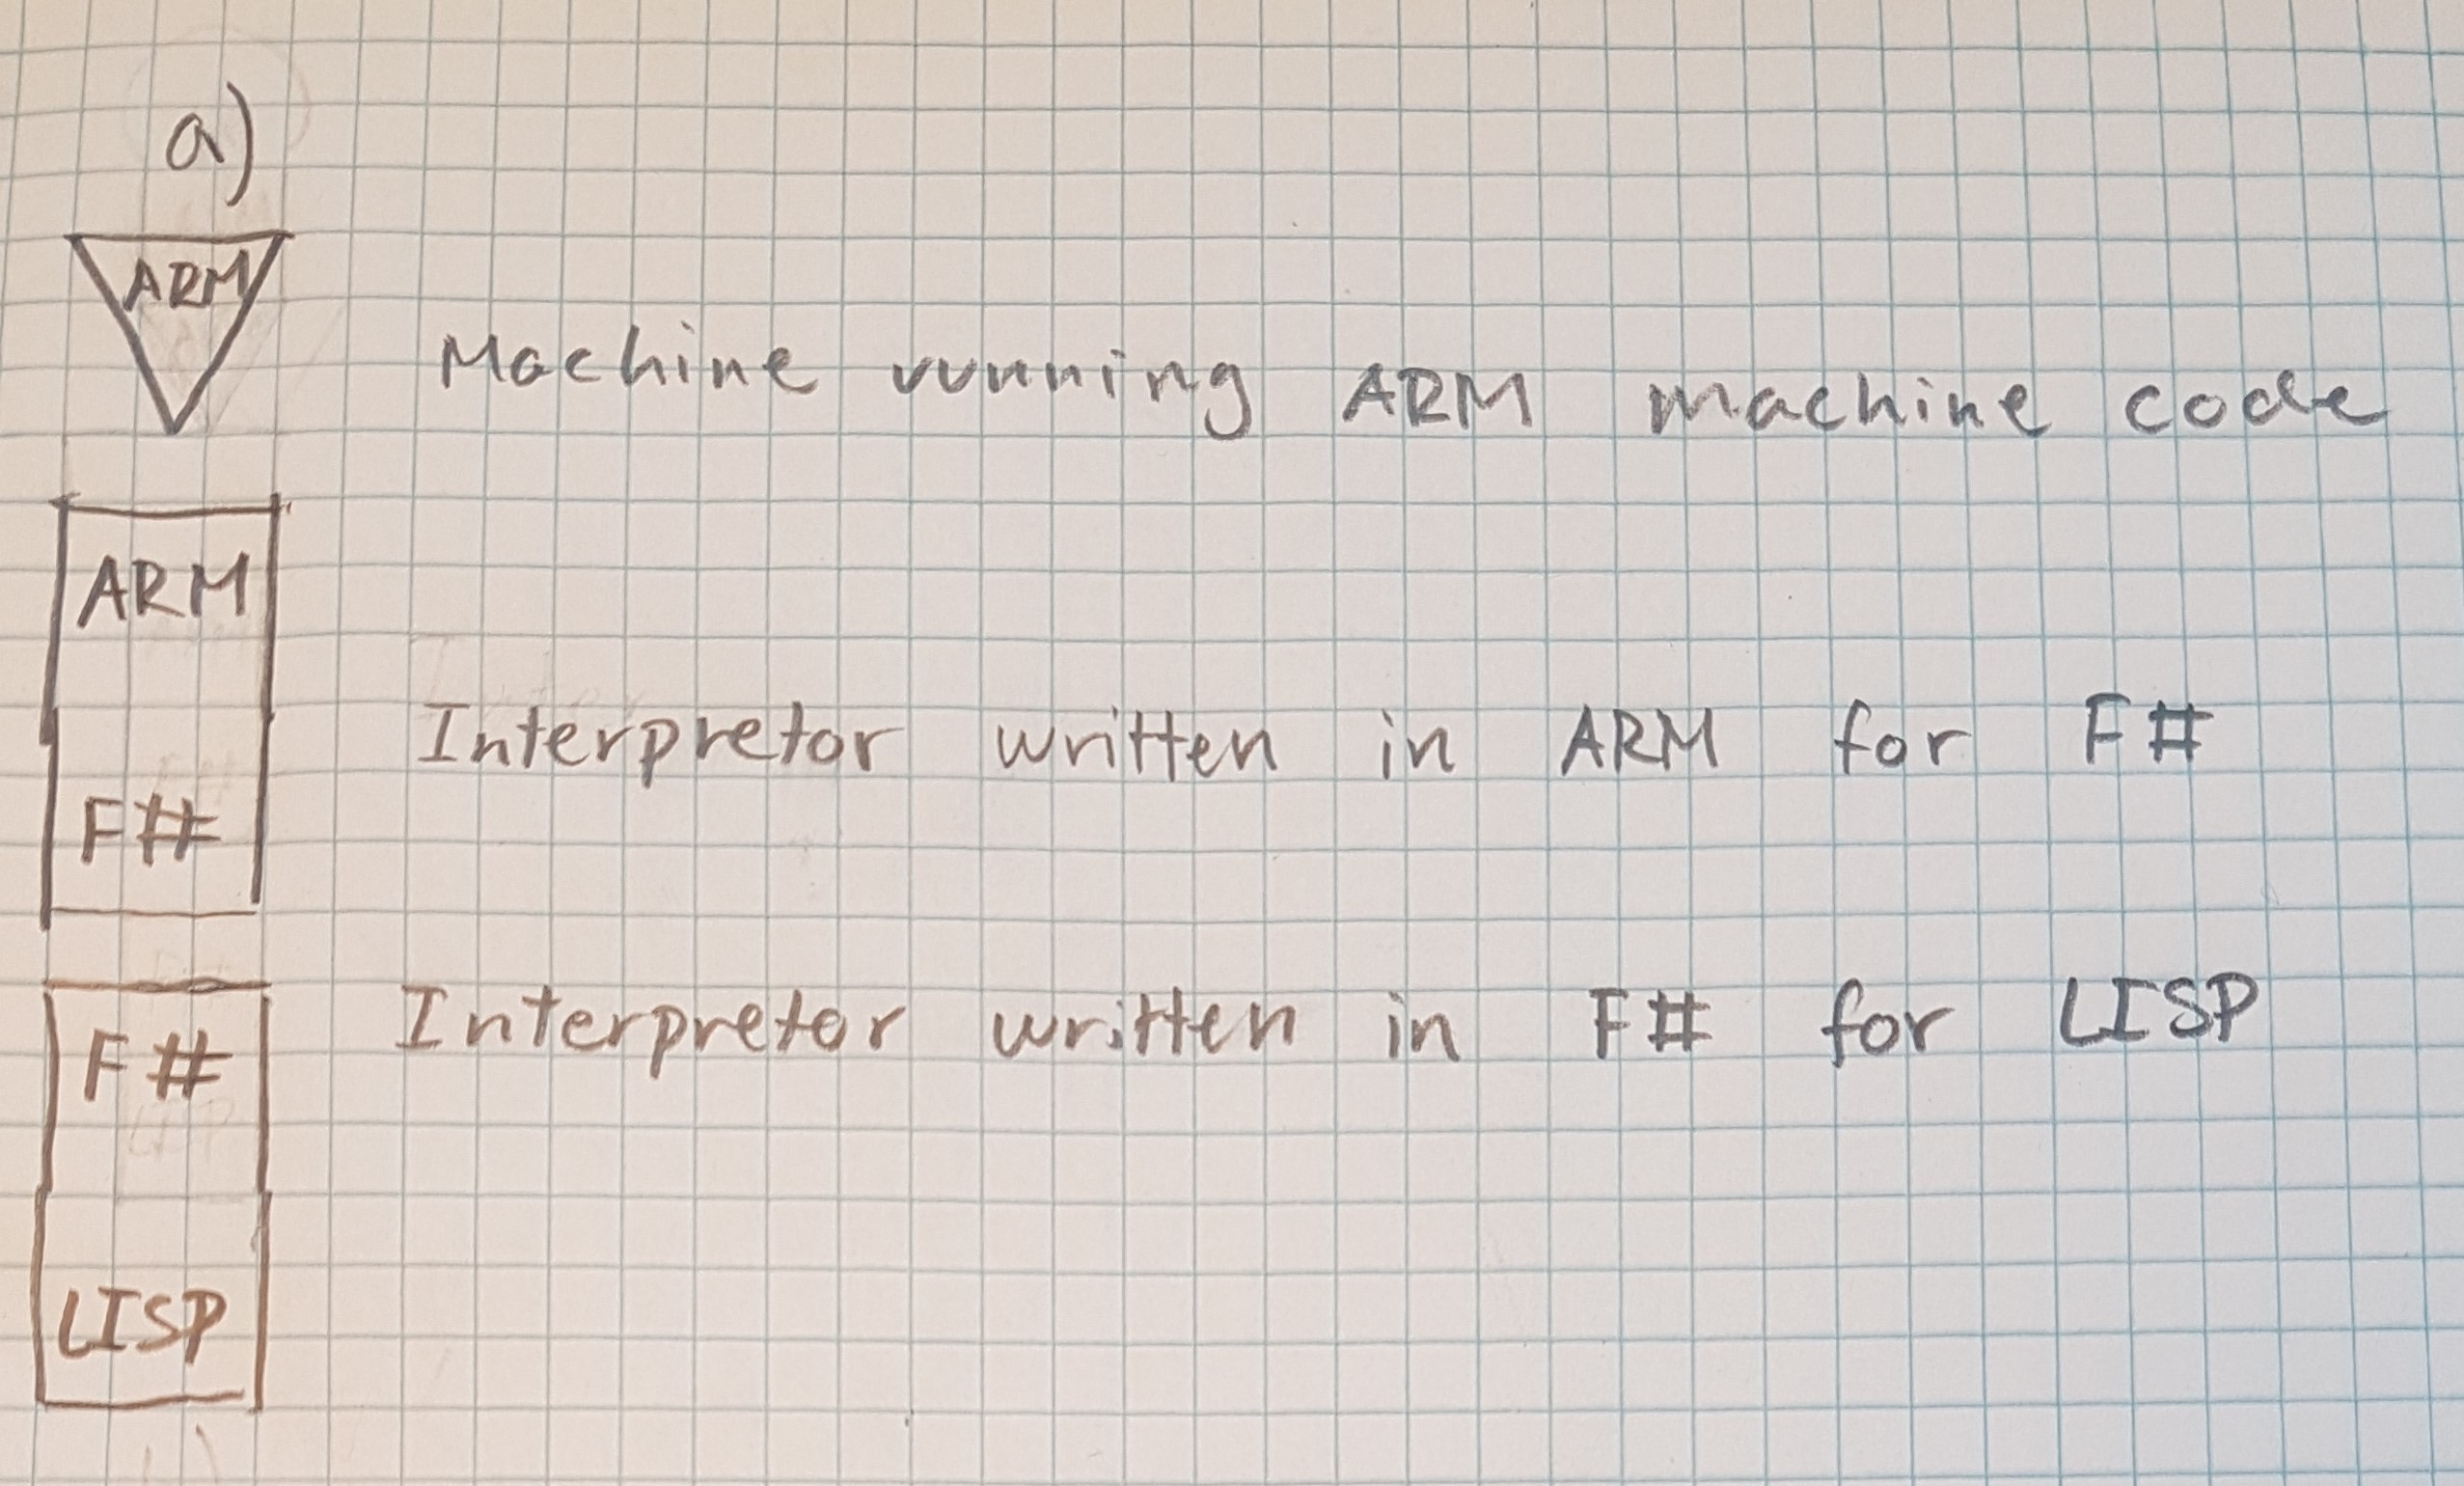 a)
ARM
Machine running ARM machine code
ARM
Interpretor written in ARM for F#
F#
Interpretor written in F# for LISP
F#
LISP